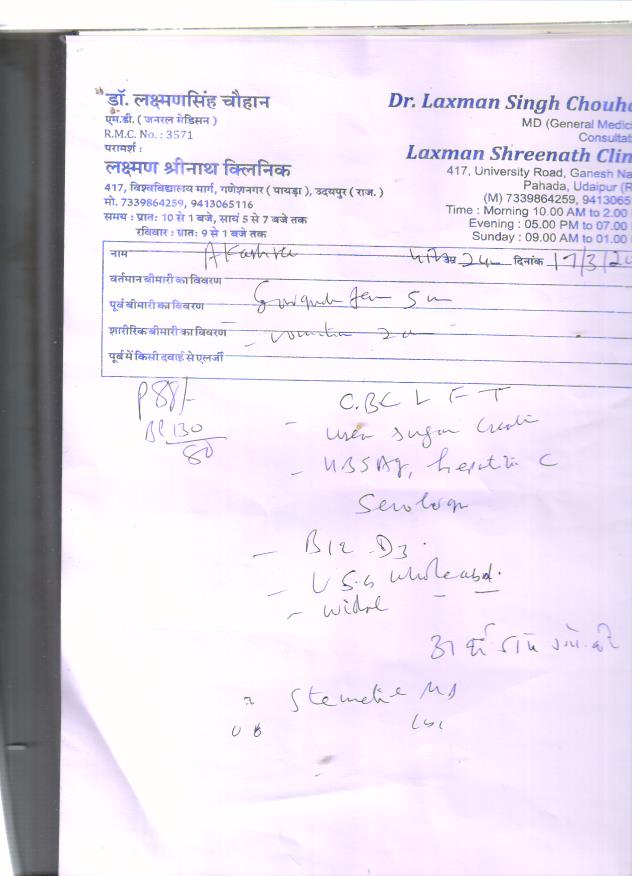 डॉ. लक्ष्मणसिंह चौहान
एम.डी. ( जनरल मेडिसन )
R.M.C. No. : 3571
परामर्श :
लक्ष्मण श्रीनाथ क्लिनिक
417, विश्वविद्यालय मार्ग, गणेशनगर ( पायड़ा ), उदयपुर ( राज. )
मो. 7339864259, 9413065116
समय : प्रातः 10 से 1 बजे, सायं 5 से 7 बजे तक
रविवार : प्रातः 9 से 1 बजे तक
Dr. Laxman Singh Chouh
MD (General Medici
Consultat
Laxman Shreenath Clin
417, University Road, Ganesh Na
Pahada, Udaipur (R
(M) 7339864259, 941306
Time : Morning 10.00 AM to 2.00
Evening : 05.00 PM to 07.00
Sunday : 09.00 AM to 01.00
नाम उम्र 24 दिनांक 17/3/20
वर्तमान बीमारी का विवरण
पूर्व बीमारी का विवरण 5
शारीरिक बीमारी का विवरण
पूर्व में किसी दवाई से एलर्जी
P 88/-
BP 130
80
C.BC LFT
- Urea Sugar
- HBSAg, hepatitis C
Serology
- B12 - D3.
- USG whole abd.
- widal
Stemetil MD